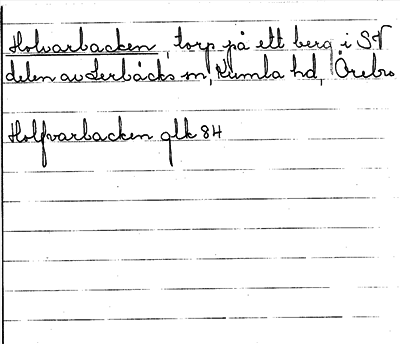 Holvarbacken, torp på ett berg i SV
delen av Lerbäcks sn, Kumla hd, Örebro
Holfvarbacken glk 84